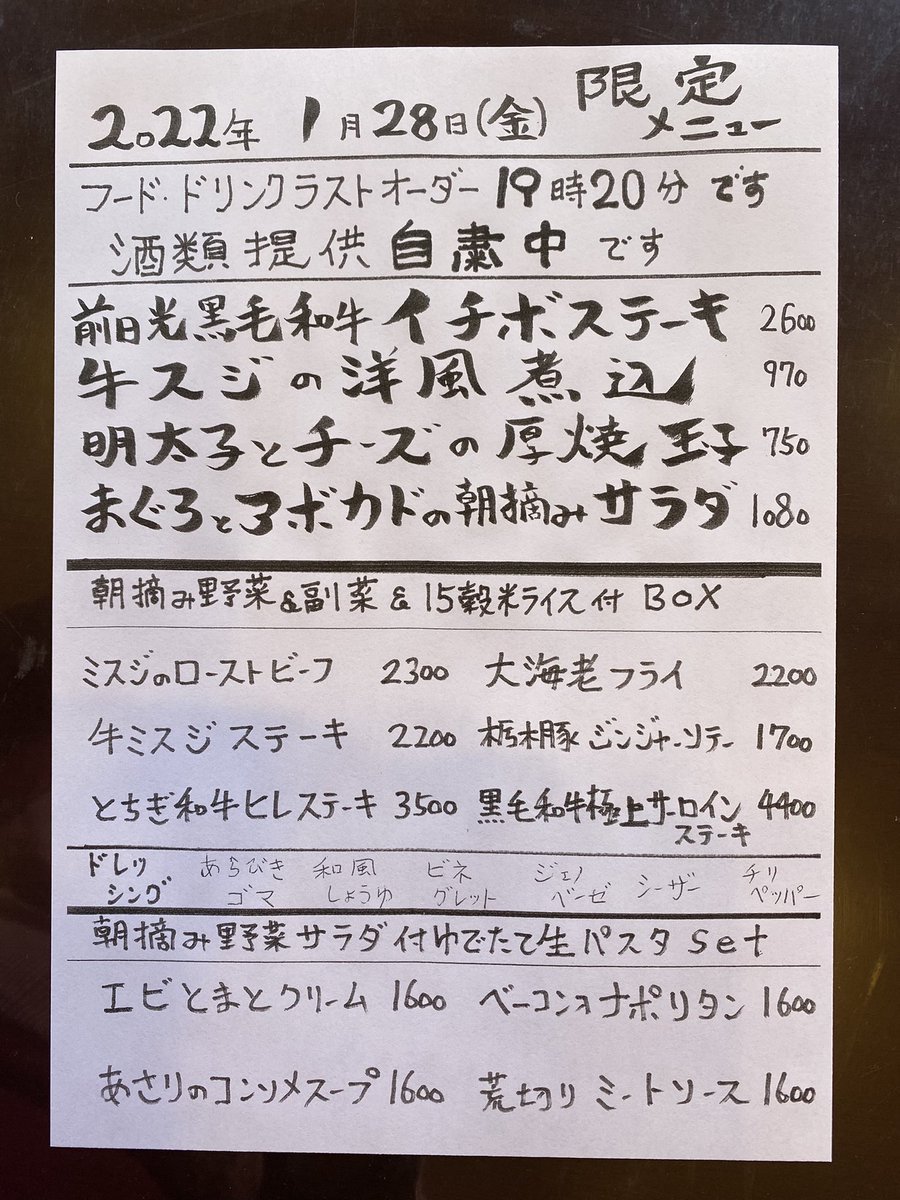 2022年 1月28日(金) 限定メニュー
フード・ドリンクラストオーダー 19時20分です
酒類提供自粛中です
前日光黒毛和牛イチボステーキ 2600
牛スジの洋風煮込 970
明太子とチーズの厚焼玉子 750
まぐろとアボカドの朝摘みサラダ 1080
朝摘み野菜&副菜&15穀米ライス付 BOX
ミスジのローストビーフ 2300 大海老フライ 2200
牛ミスジステーキ 2200 栃木豚ジンジャーソテー 1700
とちぎ和牛ヒレステーキ 3500 黒毛和牛極上サーロインステーキ 4400
ドレッシング あらびきゴマ 和風しょうゆ ビネグレット ジェノベーゼ シーザー チリペッパー
朝摘み野菜サラダ付ゆでたて生パスタ set
エビとまとクリーム 1600 ベーコンのナポリタン 1600
あさりのコンソメスープ 1600 荒切りミートソース 1600